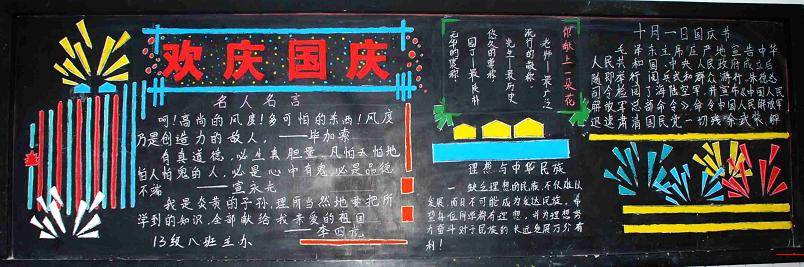 欢庆国庆
名人名言
呵!高尚的风度!多可怕的东西!风度
乃是创造力的敌人。——毕加索
有真道德,必生真胆量。凡怕天怕地
怕人怕鬼的人,必是心中有鬼,必是品德
不端 ——宣永光
我是炎黄的子孙,理所当然地要把所
学到的知识,全部献给我亲爱的祖国
——李四光
13级八班主办
献上一朵花
老师——最广泛
流行的敬称
先生——最历史
悠久的尊称
园丁——最质朴
无华的褒称
理想与中华民族
一 缺乏理想的民族,不仅难以
发展,而且不可能成为发达民族。希
望每位同学都有理想,并为理想努
力奋斗对于民族的长远发展万分有
利!
十月一日国庆节
毛泽东主席庄严地宣告中华
人民共和国、中央人民政府成立后
随即举行阅兵式和群众游行。朱德总
司令检阅了海陆空军,并宣布《中国人民
解放军总部命令》,命令中国人民解放军
迅速肃清国民党一切残余武装,解